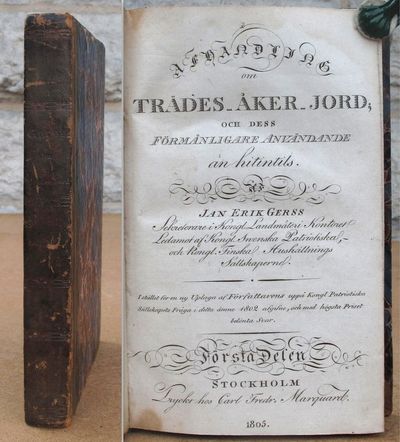 AFHANDLING
om
TRÄDES-ÅKER-JORD,
OCH DESS
FÖRMÅNLIGARE ANVÄNDANDE
än hitintils.
AF
JAN ERIK GERSS
Sekreterare i Kongl. Landmäteri Kontoret
Ledamot af Kongl. Svenska Patriotiska,-
och Kongl. Finska Hushållnings
Sällskaperne.
I stället för en ny Uplaga af Författarens uppå Kongl Patriotiska
Sällskapets Fråga i detta ämne 1802 afgifne, och med högsta Priset
belönta Svar.
Första Delen
STOCKHOLM
Tryckt hos Carl Fredr. Marquard.
1805.